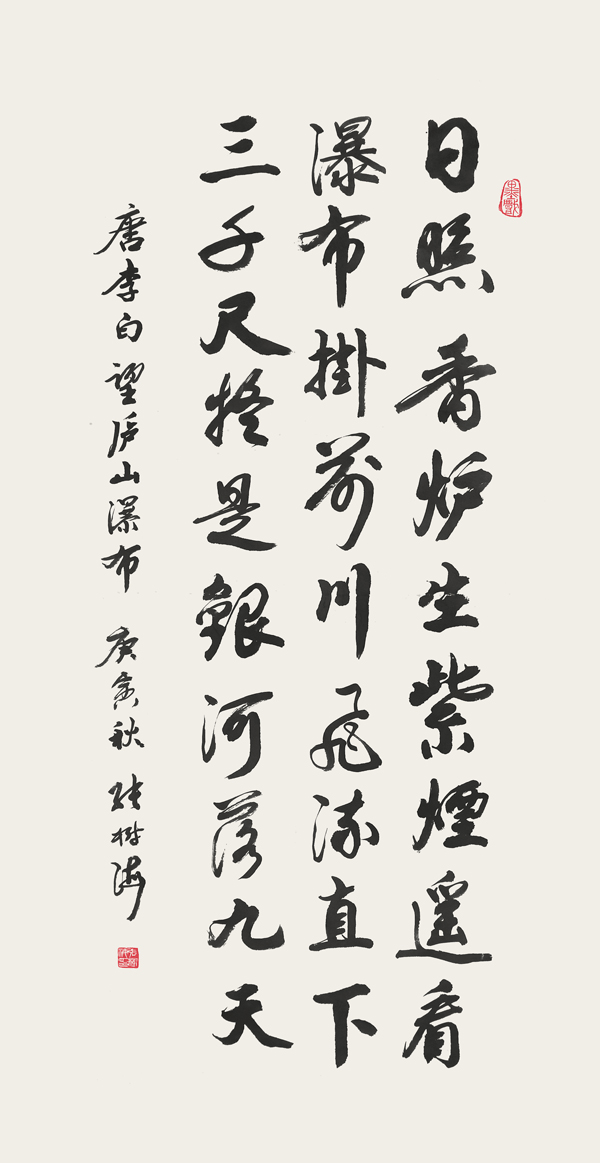 日照香炉生紫煙遥看
瀑布掛前川飛流直下
三千尺疑是銀河落九天
唐李白望庐山瀑布 庚寅秋 张树海